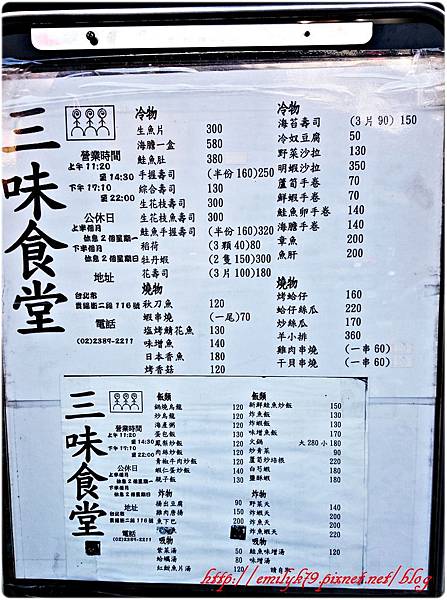 三味食堂
營業時間
上午 11:20
至 14:30
下午 17:10
至 22:00
公休日
上半個月
休息 2 個星期一
下半個月
休息 2 個星期日
地址
台北市
貴陽街二段 116 號
電話
(02)2389-2211
冷物
生魚片 300
海膽一盒 580
鮭魚肚 380
手握壽司 (半份 160) 250
綜合壽司 130
生花枝壽司 300
生花枝魚壽司 300
鮭魚手握壽司 (半份 160) 320
稻荷 (3 顆 40) 80
牡丹蝦 (2 隻 150) 300
花壽司 (3 片 100) 180
燒物
秋刀魚 120
蝦串燒 (一尾) 70
塩烤鯖花魚 130
味增魚 140
日本香魚 180
烤香菇 120
冷物
海苔壽司 (3 片 90) 150
冷奴豆腐 50
野菜沙拉 130
明蝦沙拉 350
蘆筍手卷 70
鮮蝦手卷 70
鮭魚卵手卷 140
海膽手卷 140
章魚 200
魚肝 200
燒物
烤蛤仔 160
蛤仔絲瓜 220
炒絲瓜 170
羊小排 360
雞肉串燒 (一串 60)
干貝串燒 (一串 60)
三味食堂
營業時間
上午 11:20
至 14:30
下午 17:10
至 22:00
公休日
上半個月
休息 2 個星期一
下半個月
休息 2 個星期日
地址
台北市
貴陽街二段 116 號
電話
(02)2389-2211
飯類
鍋燒烏龍 120
炒烏龍 120
海產粥 120
蛋包飯 130
鳳梨炒飯 120
肉絲炒飯 120
青椒牛肉炒飯 120
蝦仁蛋炒飯 120
親子飯 130
炸物
揚出豆腐 90
雞肉唐揚 150
魚下巴 200
吸物
紫菜湯 50
蛤蠣湯 80
紅魽魚片湯
飯類
新鮮鮭魚炒飯 150
炸魚飯 130
炸蝦飯 130
味增魚飯 170
火鍋 大 280 小 180
炒青菜 90
蘆筍炒時根 220
白芍蝦 180
鹽酥蝦 180
炸物
野菜天 140
炸蝦天 200
炸魚天 200
炸魚蝦天 220
吸物
鮭魚味增湯 130
味增湯
請自取
http://emilyk79.pixnet.net/blog